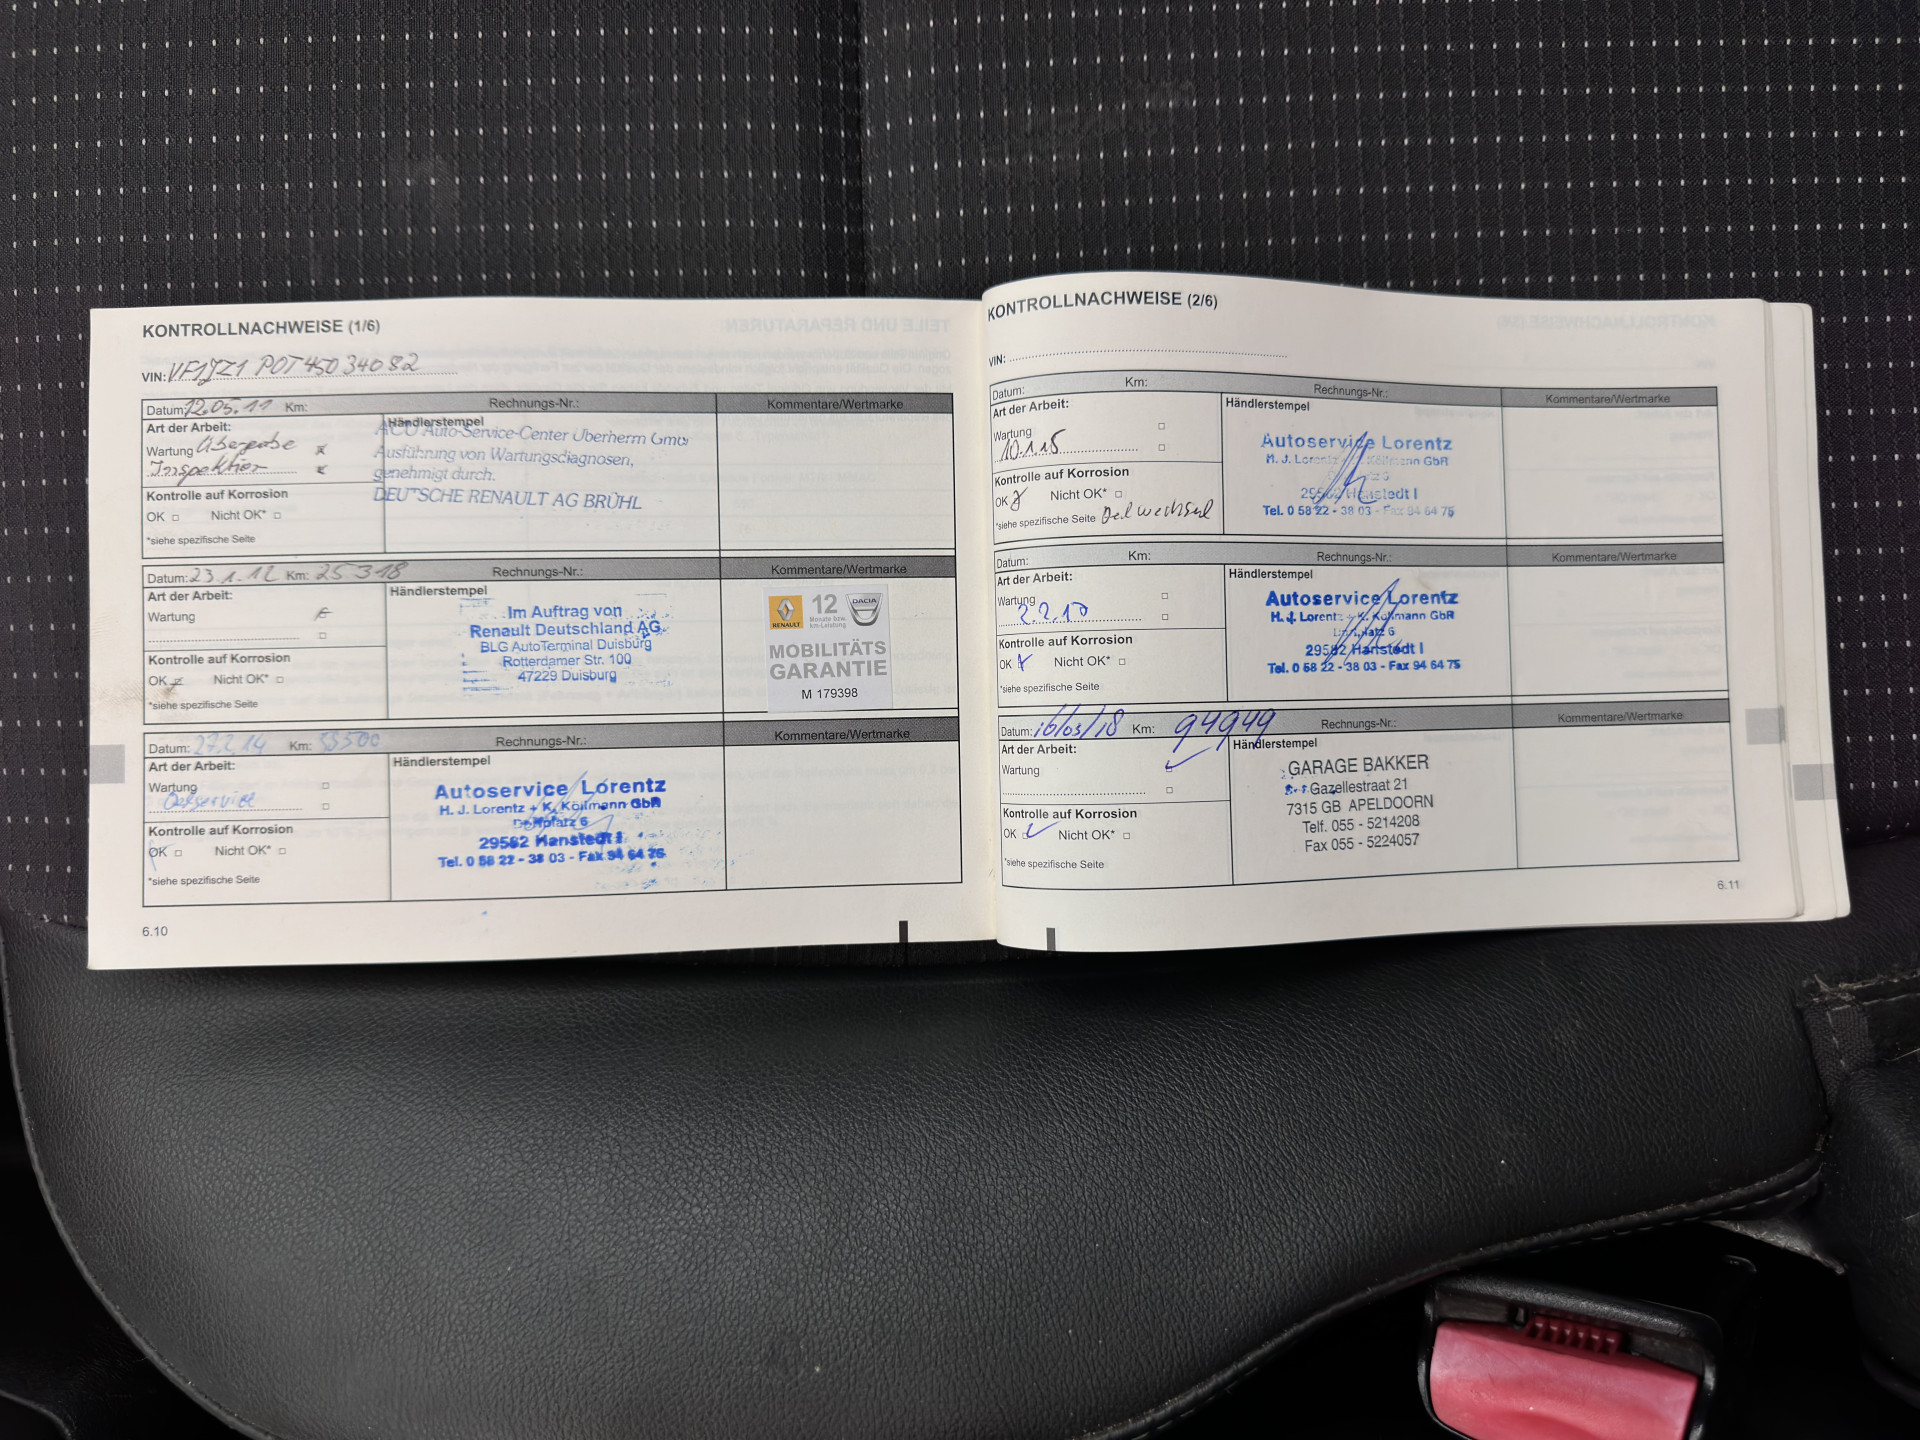 KONTROLLNACHWEISE (1/6)
VIN: VF1JZ1 POT450 34082
Datum: 12.05.11 Km: Rechnungs-Nr.: Kommentare/Wertmarke
Art der Arbeit:
Wartung Übergabe
Inspektion
Kontrolle auf Korrosion
OK Nicht OK*
*siehe spezifische Seite
Händlerstempel
ACO Auto-Service-Center Überherrn GmbH
Ausführung von Wartungsdiagnosen,
genehmigt durch.
DEUTSCHE RENAULT AG BRÜHL
Datum: 23.1.12 Km: 25318 Rechnungs-Nr.: Kommentare/Wertmarke
Art der Arbeit:
Wartung
Kontrolle auf Korrosion
OK Nicht OK*
*siehe spezifische Seite
Händlerstempel
Im Auftrag von
Renault Deutschland AG
BLG AutoTerminal Duisburg
Rotterdamer Str. 100
47229 Duisburg
RENAULT
12
Monate bzw.
km-Leistung
DACIA
MOBILITÄTS
GARANTIE
M 179398
Datum: 27.2.14 Km: 53500 Rechnungs-Nr.: Kommentare/Wertmarke
Art der Arbeit:
Wartung
Oelservice
Kontrolle auf Korrosion
OK Nicht OK*
*siehe spezifische Seite
Händlerstempel
Autoservice Lorentz
H. J. Lorentz + K. Köllmann GbR
29582 Hanstedt I
Tel. 0 58 22 - 38 03 - Fax 94 64 75
6.10
KONTROLLNACHWEISE (2/6)
VIN:
Datum: Km: Rechnungs-Nr.: Kommentare/Wertmarke
Art der Arbeit:
Wartung
10.1.15
Kontrolle auf Korrosion
OK Nicht OK*
*siehe spezifische Seite Oelwechsel
Händlerstempel
Autoservice Lorentz
H. J. Lorentz + K. Köllmann GbR
29582 Hanstedt I
Tel. 0 58 22 - 38 03 - Fax 94 64 75
Datum: Km: Rechnungs-Nr.: Kommentare/Wertmarke
Art der Arbeit:
Wartung
Kontrolle auf Korrosion
OK Nicht OK*
*siehe spezifische Seite
Händlerstempel
Autoservice Lorentz
H. J. Lorentz + K. Köllmann GbR
29582 Hanstedt I
Tel. 0 58 22 - 38 03 - Fax 94 64 75
Datum: 16/03/18 Km: 94949 Rechnungs-Nr.: Kommentare/Wertmarke
Art der Arbeit:
Wartung
Kontrolle auf Korrosion
OK Nicht OK*
*siehe spezifische Seite
Händlerstempel
GARAGE BAKKER
Gazellestraat 21
7315 GB APELDOORN
Telf. 055 - 5214208
Fax 055 - 5224057
6.11